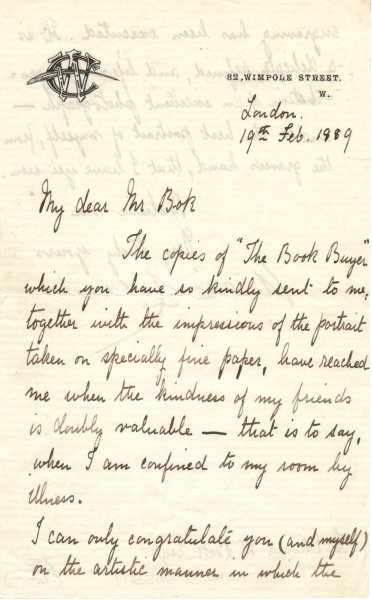 82, WIMPOLE STREET.
W.
London.
19th Feb. 1889
My dear Mr Bok
The copies of "The Book Buyer"
which you have so kindly sent to me,
together with the impressions of the portrait
taken on specially fine paper, have reached
me when the kindness of my friends
is doubly valuable — that is to say,
when I am confined to my room by
illness.
I can only congratulate you (and myself)
on the artistic manner in which the